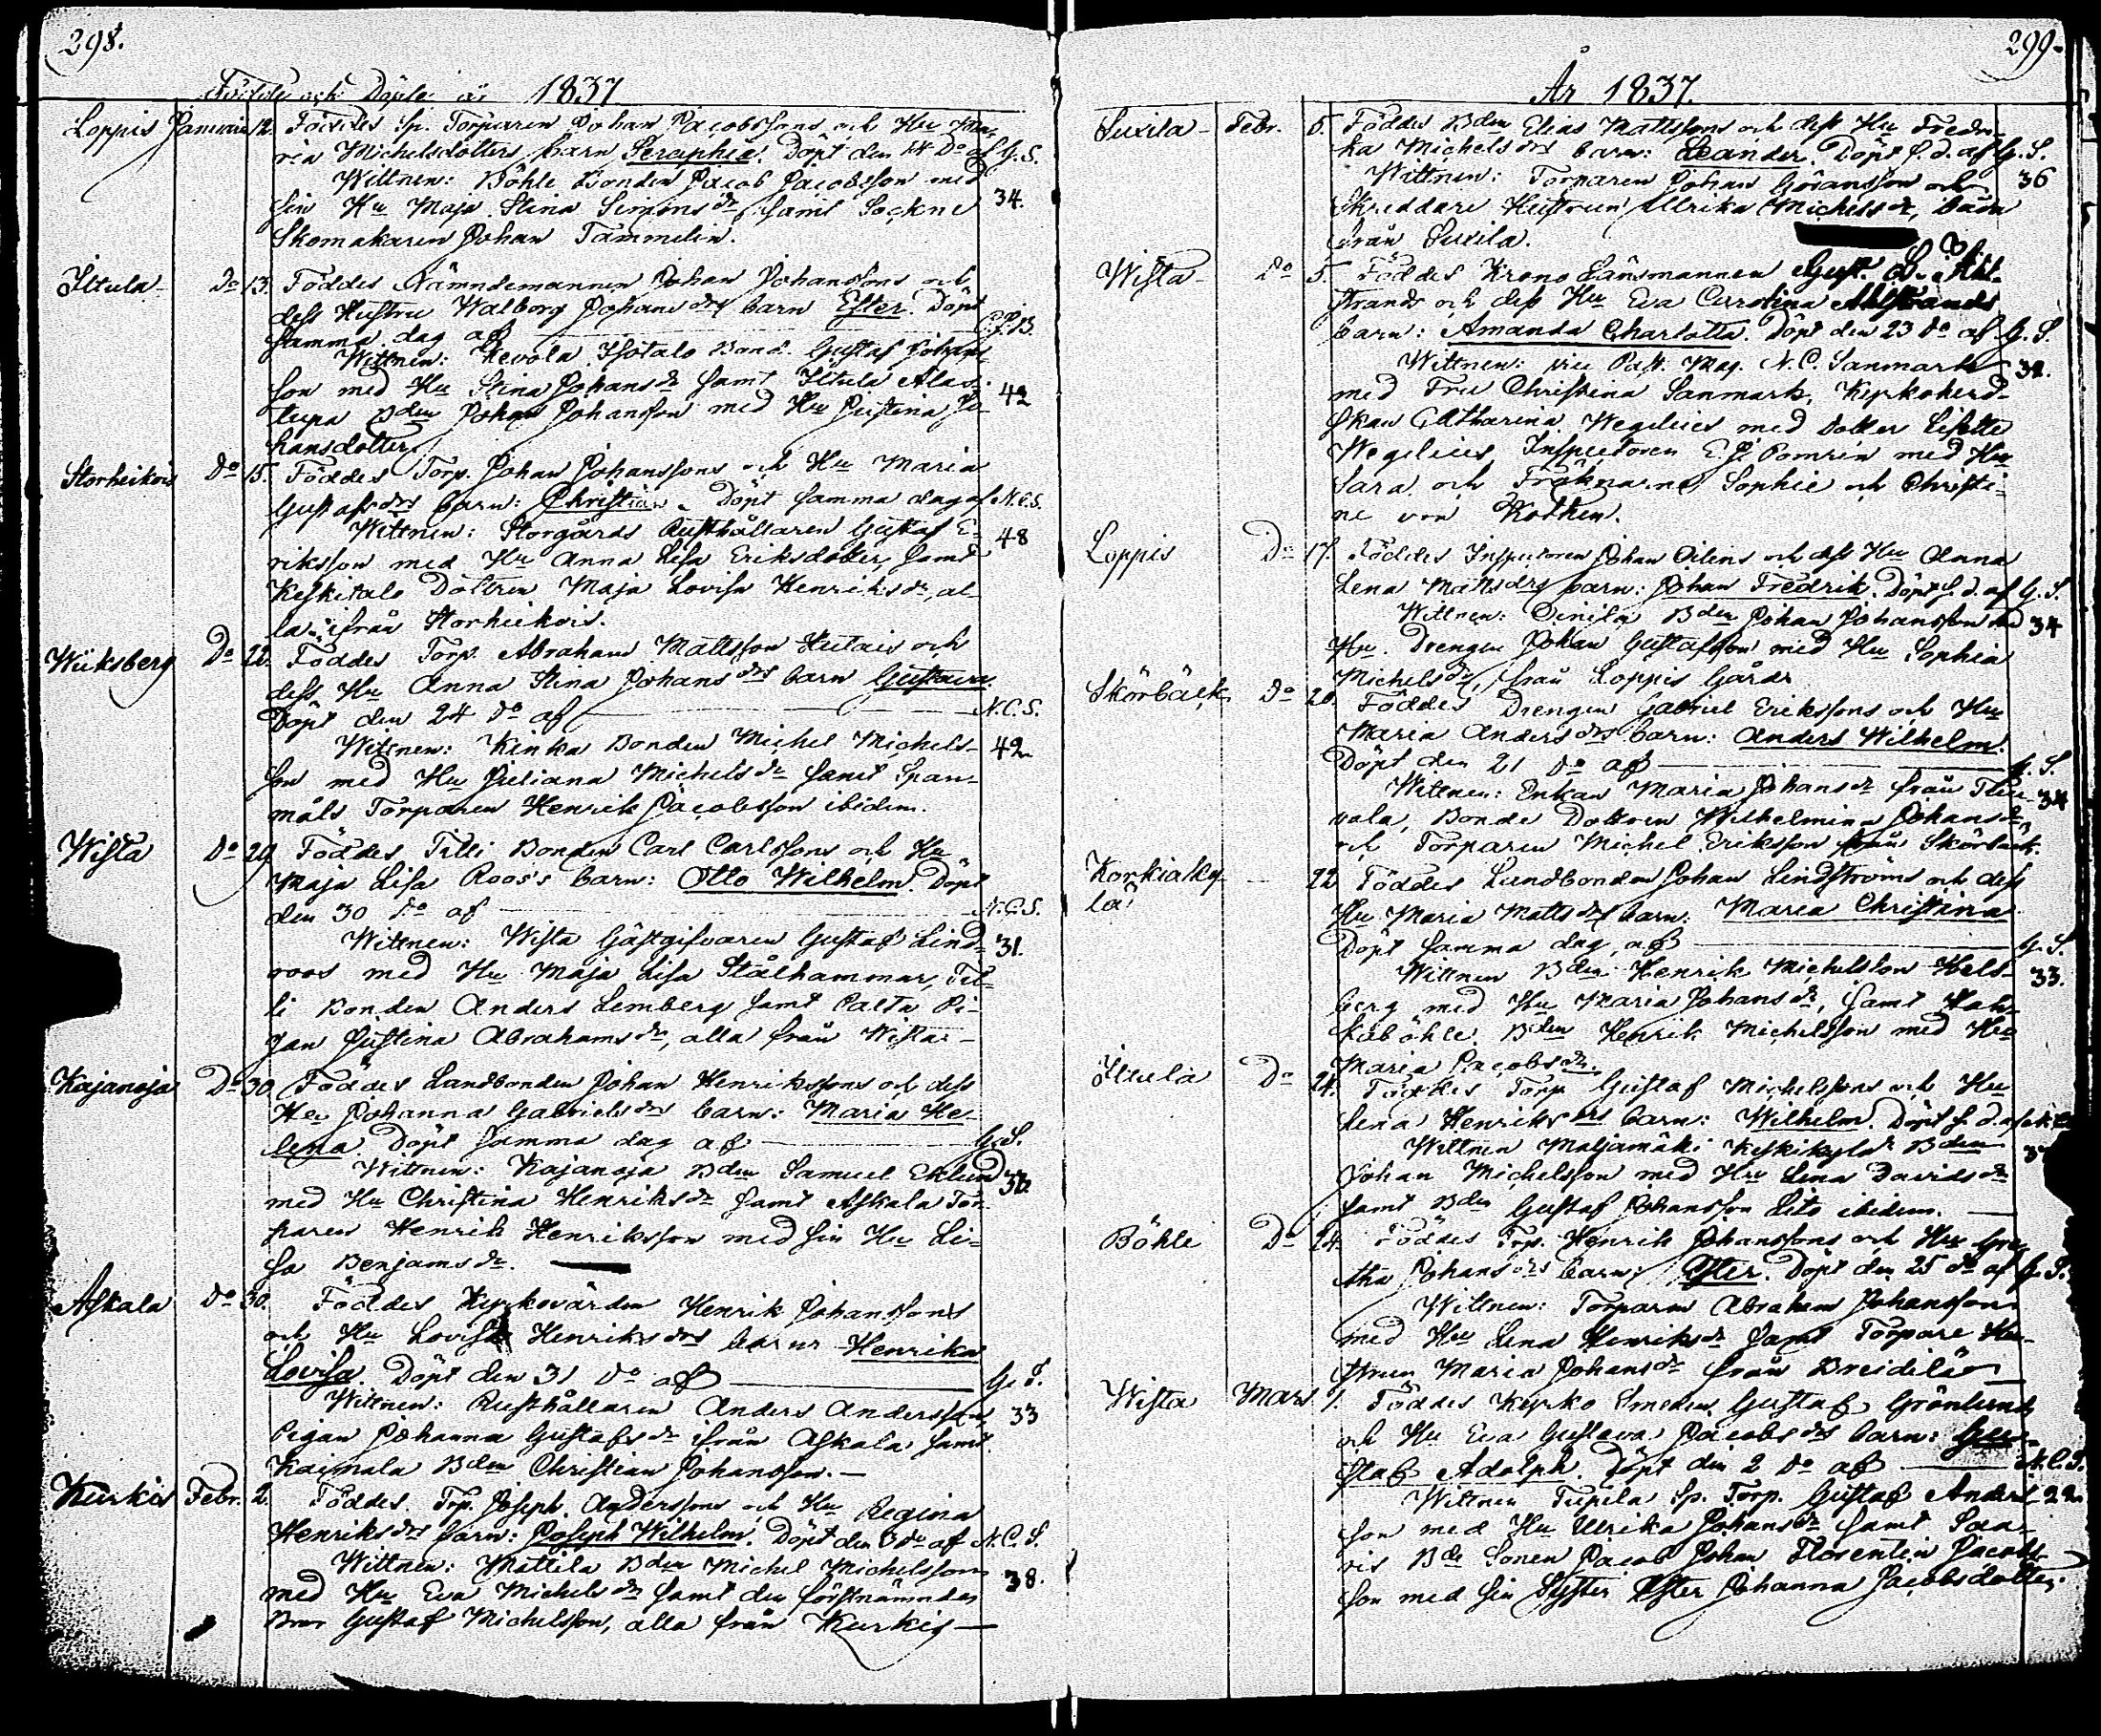 298.
Födde och Döpte år 1837
Loppis Januarii 12. Föddes Sp. Torparen Johan Jacobssons och Hu Ma-
ria Michelsdotters barn Seraphia. Döpt den 14 Do af G. S.
Wittnen: Böhle Bonden Jacob Jacobsson med
sin Hu Maja Stina Simonsdr samt Sockne 34.
Skomakaren Johan Tammelin.
Iltula Do 13. Föddes Nämndemannen Johan Johanssons och
dess Hustru Walborg Johansdrs barn Ester. Döpt
samma dag af
Wittnen: Kevola Isotalo Bond. Gustaf Johans-
son med Hu Stina Johansdr samt Iltula Alas- 42
tupa Bden Johan Johansson med Hu Justina Jo-
hansdotter.
Storheikois Do 15. Föddes Torp. Johan Johanssons och Hu Maria
Gustafsdrs barn: Christian. Döpt samma dag af N.C.S.
Wittnen: Storgårds Rusthållaren Gustaf E- 48
riksson med Hu Anna Lisa Eriksdotter, samt
Keskitalo Dottren Maja Lovisa Henriksdr, al-
la ifrån Storheikois.
Wiiksberg Do 22. Föddes Torp. Abraham Mattsson Hutais och
dess Hu Anna Stina Johansdrs barn Gustava.
Döpt den 24 Do af N.C.S.
Wittnen: Kinka Bonden Michel Michels- 42
son med Hu Juliana Michelsdr samt Span-
måls Torparen Henrik Jacobsson ibidem.
Wista Do 29 Föddes Tilli Bonden Carl Carlssons och Hu
Maja Lisa Roos's barn: Otto Wilhelm. Döpt
den 30 Do af N.C.S.
Wittnen: Wista Gästgifvaren Gustaf Lind- 31.
roos med Hu Maja Lisa Stålhammar, Til-
li Bonden Anders Lemberg samt Palta Pi-
gan Justina Abrahamsdr, alla från Wista
Kajanoja Do 30. Föddes Landbonden Johan Henrikssons och dess
Hu Johanna Gabrielsdrs barn: Maria He-
lena. Döpt samma dag af G. S.
Wittnen: Kajanoja Bden Samuel Eklund
med Hu Christina Henriksdr samt Askala Tor-
paren Henrik Henriksson med sin Hu Li-
sa Benjamsdr.
Askala Do 30. Föddes Kyrkovärden Henrik Johanssons
och Hu Lovisa Henriksdrs barn Henrika
Lovisa. Döpt den 31 Do af G. S.
Wittnen: Rusthållaren Anders Andersson, 33
Pigan Johanna Gustafsdr ifrån Askala samt
Kaimala Bden Christian Johansson.
Kurkis Febr. 2. Föddes. Trp. Joseph Anderssons och Hu Regina
Henriksdrs barn: Joseph Wilhelm. Döpt den 3 do af N.C.S.
Wittnen: Mattila Bden Michel Michelsson
med Hu Eva Michelsdr samt den förstnämndes 38.
Bror Gustaf Michelsson, alla från Kurkis
299.
År 1837.
Suxila Febr. 5. Föddes Bden Elias Mattssons och dess Hu Fredri-
ka Michelsdrs barn: Leander. Döpt s. d. af G. S.
Wittnen: Torparen Johan Göransson och 36
Skreddare Hustrun Ullrika Michelsdr, båda
från Suxila.
Wista Do 5. Föddes Krono Länsmannen Gust. B. Ahl-
strands och dess Hu Eva Carolina Ahlstrands
barn: Amanda Charlotta. Döpt den 23 do af G. S.
Wittnen: vice Past. Mag. N. C. Sanmark
med Fru Christina Sanmark, Kyrkoherd-
skan Catharina Wegelius med dotter Lisette
Wegelius, Inspectoren E. J. Pomrén med Hu
Sara och Fröknarne Sophie och Christi-
ne von Kothen.
Loppis Do 17. Föddes Inspectoren Johan Oilens och dess Hu Anna
Lena Mattsdrs barn: Johan Fredrik. Döpt s. d. af G. S.
Wittnen: Oinila Bden Johan Johansson med 34
Hu. Drengen Johan Gustafsson med Hu Sophia
Michelsdr, från Loppis Gård.
Skörbäck Do 20. Föddes Drengen Gabriel Erikssons och Hu
Maria Andersdrs barn: Anders Wilhelm.
Döpt den 21 Do af G. S.
Wittnen: Enkan Maria Johansdr från 34
vala, Bonde Dottren Wilhelmina Johansdr
och Torparen Michel Eriksson från Skörbäck.
Korkiaky- 22 Föddes Landbonden Johan Lindströms och dess
lä Hu Maria Mattsdrs barn: Maria Christina
Döpt samma dag, af G. S.
Wittnen Bden Henrik Michelsson Hels- 33.
berg med Hu Maria Johansdr, samt
böhle Bden Henrik Michelsson med Hu
Maria Jacobsdr.
Iltula Do 24. Föddes Torp Gustaf Michelssons och Hu
Lena Henriksdrs barn: Wilhelm. Döpt s. d. af
Wittnen Maljamäki Keskikylä Bden
Johan Michelsson med Hu Lena Davidsdr
samt Bden Gustaf Johansson Lito ibidem.
Böhle Do 24. Föddes Trp. Henrik Johanssons och Hu Gre-
tha Johansdrs barn: Ester. Döpt den 25 do af G. S.
Wittnen: Torparen Abraham Johansson
med Hu Lena Henriksdr samt Torpare Hu-
strun Maria Johansdr från Breidilä
Wista Mars 1. Föddes Kyrko Smeden Gustaf Grönlunds
och Hu Eva Gustava Jacobsdrs barn: Gu-
staf Adolph. Döpt den 2 Do af N.C.S.
Wittnen Tupila Sp. Torp. Gustaf Anders- 22
son med Hu Ullrika Johansdr samt Saa-
ris Bde Sonen Jacob Johan Florentin Jacobs-
son med sin Syster Ester Johanna Jacobsdotter.